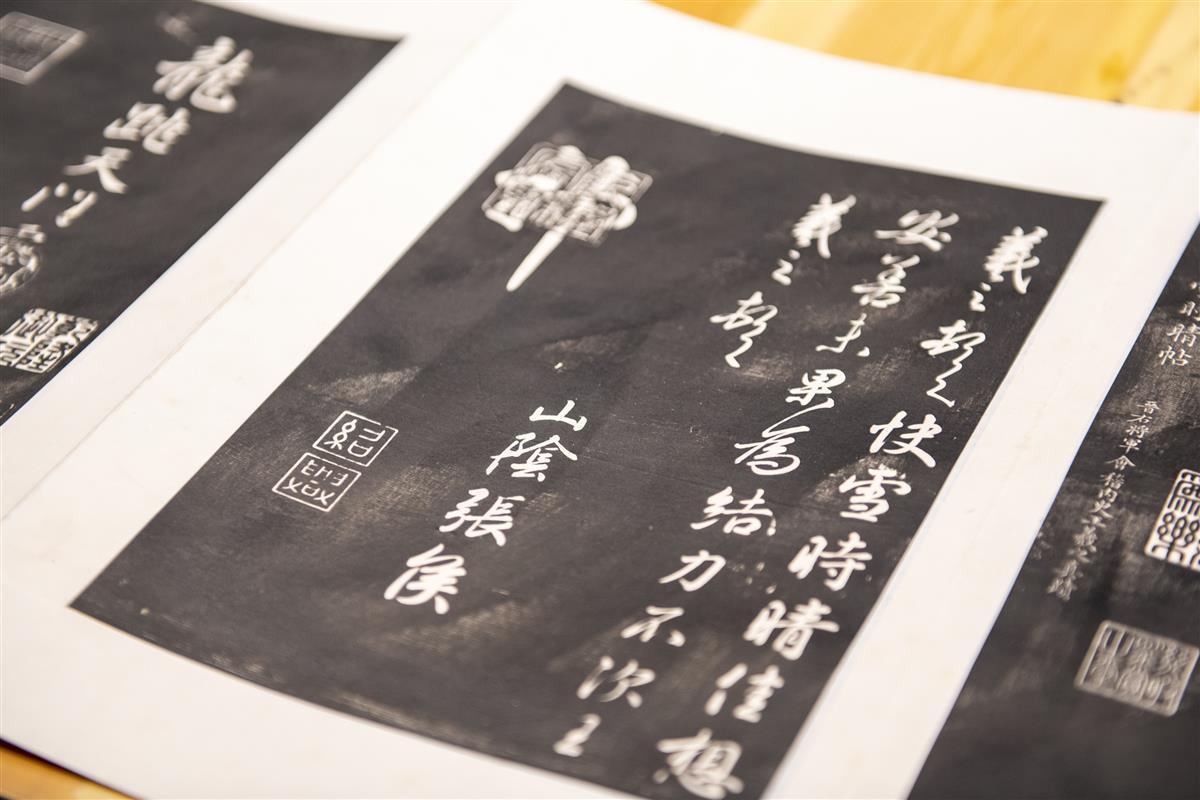 時晴帖
晉右將軍會稽內史王羲之真蹟
羲之頓首快雪時晴佳想
安善未果為結力不次王
羲之頓首
山陰張侯
紹興
龍跳天門